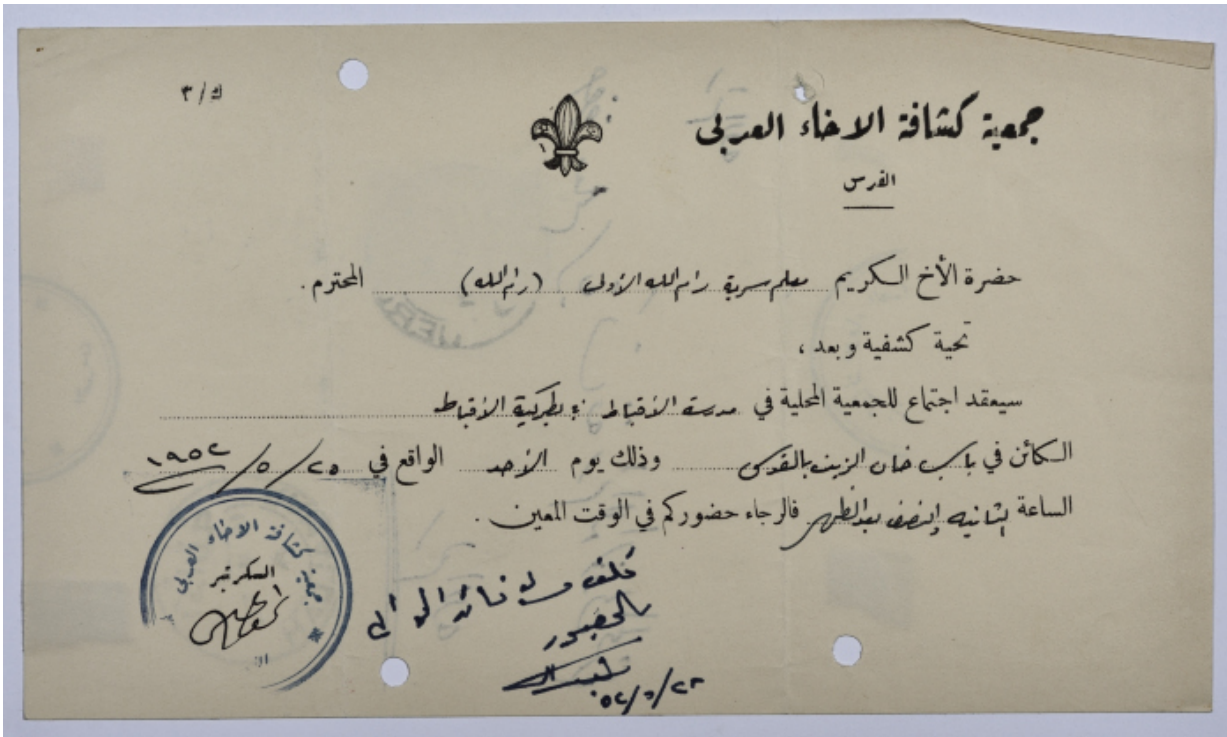 ك/٣
جمعية كشافة الاخاء العربى
القدس
حضرة الأخ الكريم معلم سرية رام الله الأولى (رام الله) المحترم.
تحية كشفية وبعد ،
سيعقد اجتماع للجمعية المحلية في مدرسة الأقباط بطركية الأقباط
الكائن في باب خان الزيت بالقدس وذلك يوم الأحد الواقع في ٢٥/٥/١٩٥٢
الساعة الثانية والنصف بعد الظهر فالرجاء حضوركم في الوقت المعين .
جمعية كشافة الاخاء العربى
السكرتير
بالحضور